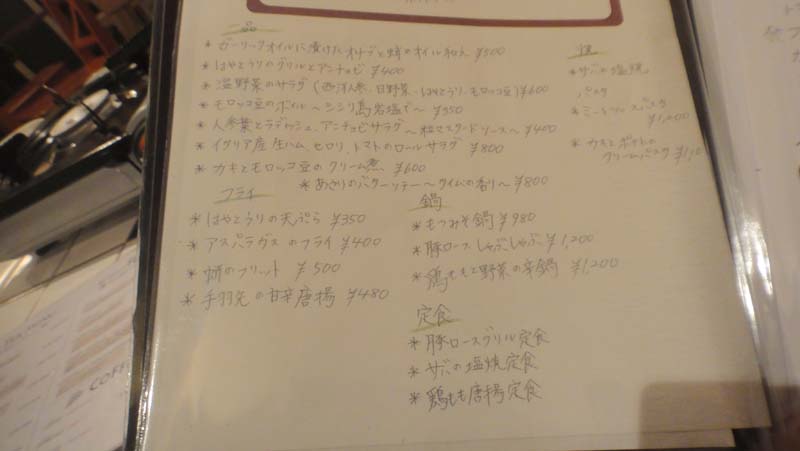 一品
* ガーリックオイルに漬けたオナガと蛸のオイル和え ¥500
* はやとうりのグリルとアンチョビ ¥400
* 温野菜のサラダ (西洋人参、日野菜、はやとうり、モロッコ豆) ¥600
* モロッコ豆のボイル 〜シシリ島岩塩で〜 ¥350
* 人参葉とラディッシュ、アンチョビサラダ 〜粒マスタードソース〜 ¥400
* イタリア産 生ハム、セロリ、トマトのロールサラダ ¥800
* カキとモロッコ豆のクリーム煮 ¥600
* あさりのバターソテー 〜タイムの香り〜 ¥800
フライ
* はやとうりの天ぷら ¥350
* アスパラガスのフライ ¥400
* 蛸のフリット ¥500
* 手羽先の甘辛唐揚 ¥480
鍋
* もつみそ鍋 ¥980
* 豚ロースしゃぶしゃぶ ¥1,200
* 鶏ももと野菜の辛鍋 ¥1,200
定食
* 豚ロースグリル定食
* サバの塩焼定食
* 鶏もも唐揚定食
* サバの塩焼
パスタ
* ミートソースパスタ
¥1,000
* カキとポテトの
クリームパスタ
COFF